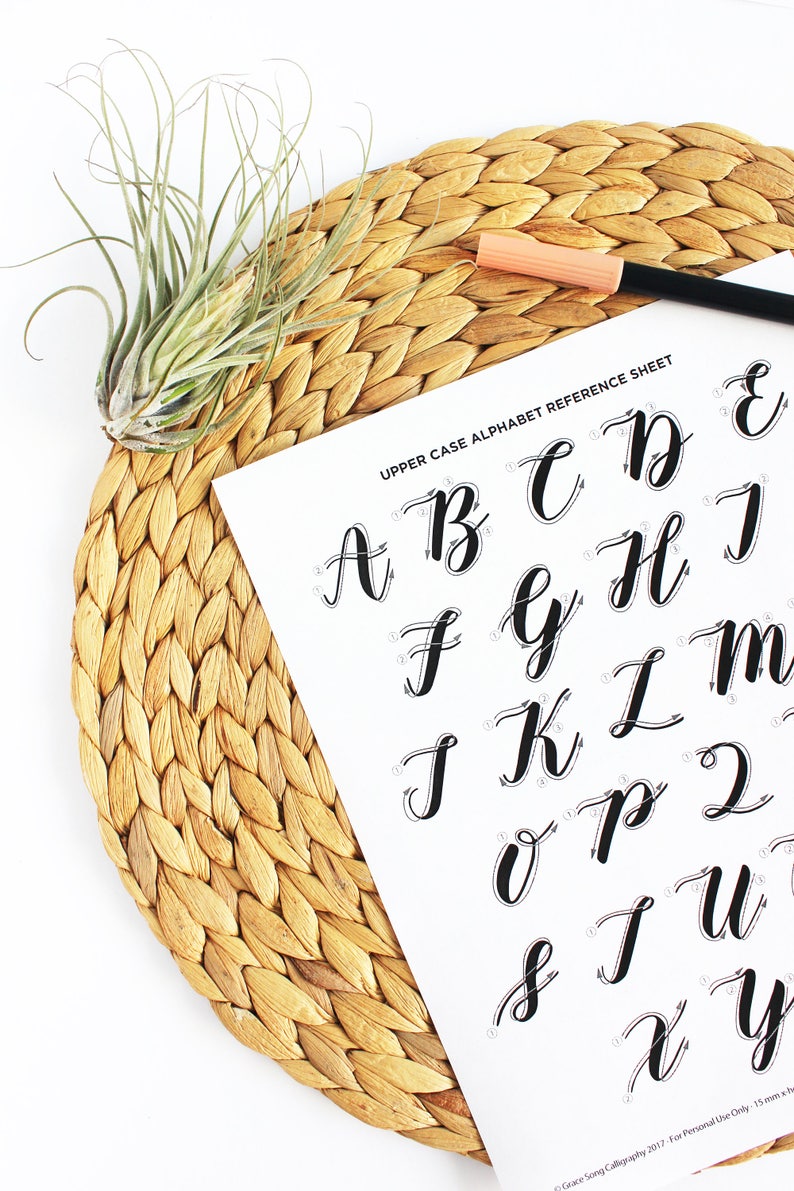 UPPER CASE ALPHABET REFERENCE SHEET
A B C D E
F G H I
J K L M
O P Q
S T U
X Y
© Grace Song Calligraphy 2017 · For Personal Use Only · 15 mm